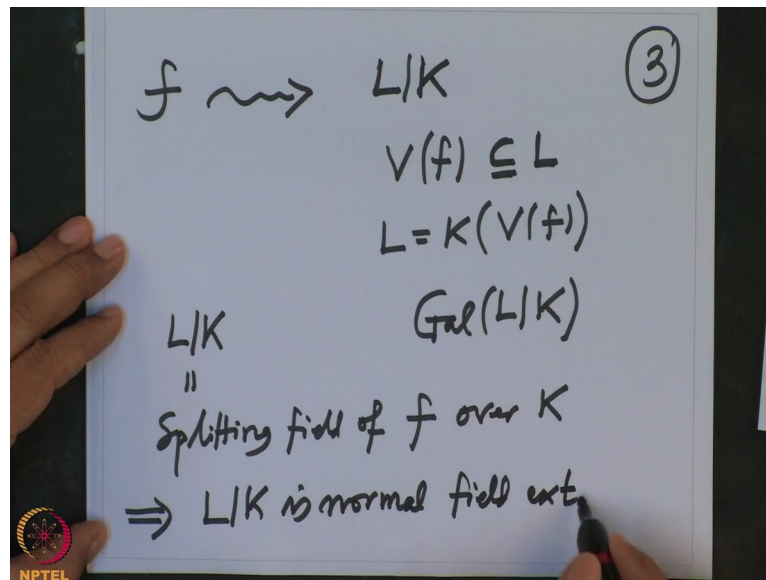 f ⇝ L|K
③
V(f) ⊆ L
L = K(V(f))
Gal(L|K)
L|K
=
Splitting field of f over K
⇒ L|K is normal field ext
NPTEL